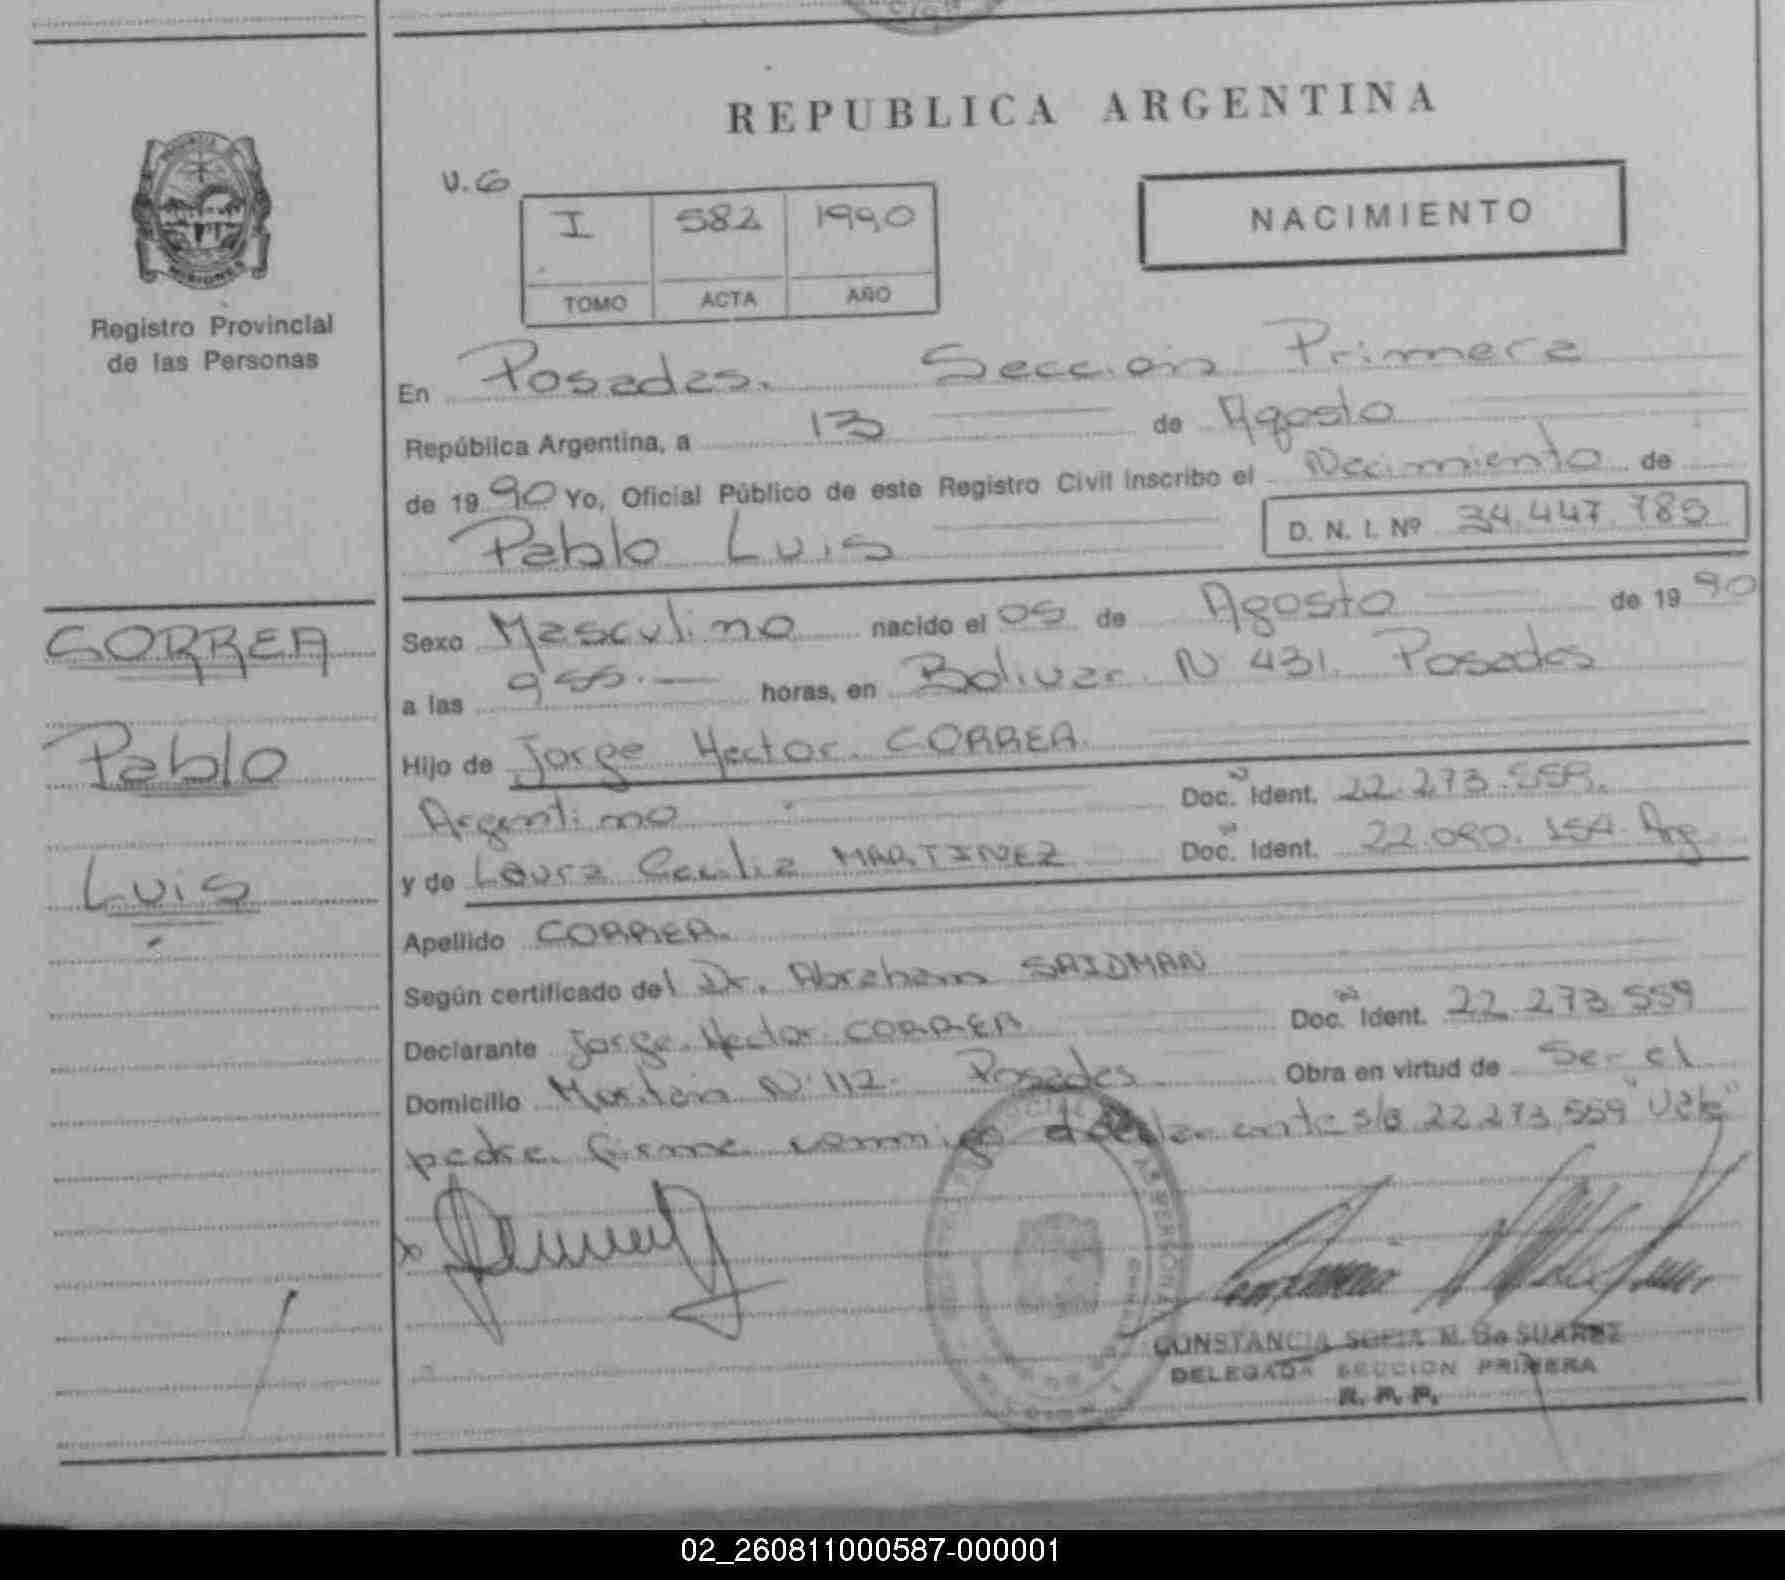 REPUBLICA ARGENTINA
U.G
I 582 1990
TOMO ACTA AÑO
NACIMIENTO
MISIONES
Registro Provincial
de las Personas
En Posadas. Seccion Primera
República Argentina, a 13 de Agosto
de 1990 Yo, Oficial Público de este Registro Civil Inscribo el Nacimiento de
Pablo Luis D. N. I. Nº 34.447.785
CORREA
Pablo
Luis
Sexo Masculino nacido el 05 de Agosto de 1990
a las 9 55.— horas, en Bolivar N 431. Posadas
Hijo de Jorge Hector CORREA
Argentino Doc. Ident. 22.273.559.
y de Laura Cecilia MARTINEZ Doc. Ident. 22.090.154. Arg
Apellido CORREA.
Según certificado del Dr. Abraham SAIDMAN
Declarante Jorge Hector CORREA Doc. Ident. 22.273.559
Domicilio N 112. Posadas Obra en virtud de Ser el
padre. firma conmigo declarante s/b 22.273.559 "Vale"
CONSTANCIA SOFIA M. De SUAREZ
DELEGADA SECCION PRIMERA
R. P. P.
02_260811000587-000001